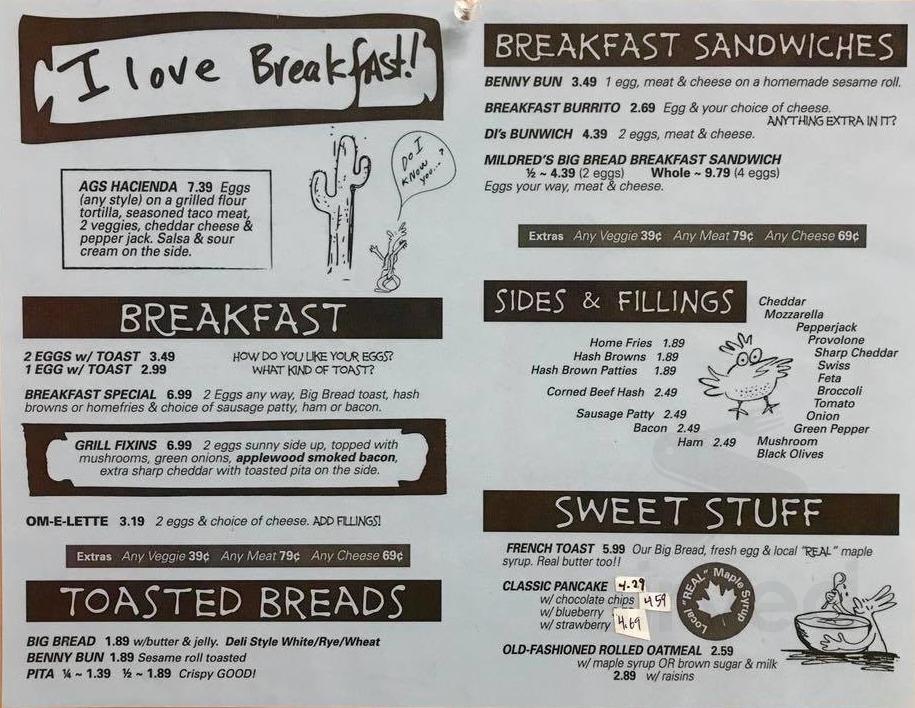 I love Breakfast!
DO I
KNOW
YOU...?
AGS HACIENDA 7.39 Eggs
(any style) on a grilled flour
tortilla, seasoned taco meat,
2 veggies, cheddar cheese &
pepper jack. Salsa & sour
cream on the side.
BREAKFAST
2 EGGS w/ TOAST 3.49 HOW DO YOU LIKE YOUR EGGS?
1 EGG w/ TOAST 2.99 WHAT KIND OF TOAST?
BREAKFAST SPECIAL 6.99 2 Eggs any way, Big Bread toast, hash
browns or homefries & choice of sausage patty, ham or bacon.
GRILL FIXINS 6.99 2 eggs sunny side up, topped with
mushrooms, green onions, applewood smoked bacon,
extra sharp cheddar with toasted pita on the side.
OM-E-LETTE 3.19 2 eggs & choice of cheese. ADD FILLINGS!
Extras Any Veggie 39¢ Any Meat 79¢ Any Cheese 69¢
TOASTED BREADS
BIG BREAD 1.89 w/butter & jelly. Deli Style White/Rye/Wheat
BENNY BUN 1.89 Sesame roll toasted
PITA ¼ ~ 1.39 ½ ~ 1.89 Crispy GOOD!
BREAKFAST SANDWICHES
BENNY BUN 3.49 1 egg, meat & cheese on a homemade sesame roll.
BREAKFAST BURRITO 2.69 Egg & your choice of cheese.
ANYTHING EXTRA IN IT?
DI's BUNWICH 4.39 2 eggs, meat & cheese.
MILDRED'S BIG BREAD BREAKFAST SANDWICH
½ ~ 4.39 (2 eggs) Whole ~ 9.79 (4 eggs)
Eggs your way, meat & cheese.
Extras Any Veggie 39¢ Any Meat 79¢ Any Cheese 69¢
SIDES & FILLINGS
Home Fries 1.89
Hash Browns 1.89
Hash Brown Patties 1.89
Corned Beef Hash 2.49
Sausage Patty 2.49
Bacon 2.49
Ham 2.49
Cheddar
Mozzarella
Pepperjack
Provolone
Sharp Cheddar
Swiss
Feta
Broccoli
Tomato
Onion
Green Pepper
Mushroom
Black Olives
SWEET STUFF
FRENCH TOAST 5.99 Our Big Bread, fresh egg & local "REAL" maple
syrup. Real butter too!!
CLASSIC PANCAKE 4.29
w/ chocolate chips 4.59
w/ blueberry
w/ strawberry 4.69
Local "REAL" Maple Syrup
OLD-FASHIONED ROLLED OATMEAL 2.59
w/ maple syrup OR brown sugar & milk
2.89 w/ raisins